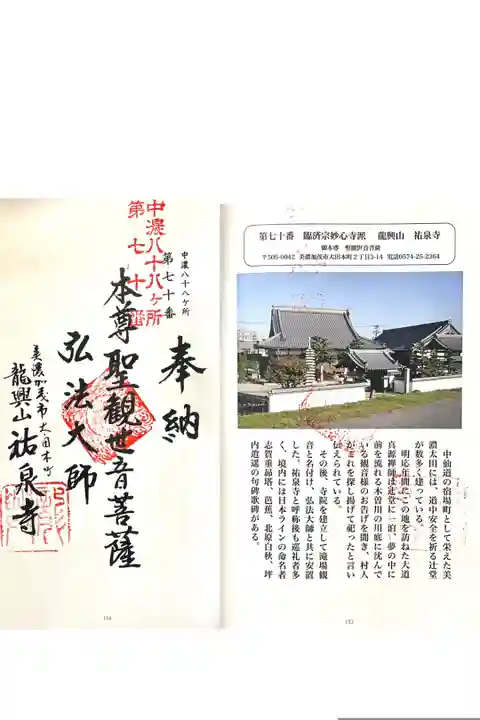 第七十番 臨済宗妙心寺派 龍興山 祐泉寺
御本尊 聖観世音菩薩
〒505-0042 美濃加茂市太田本町2丁目5-14 電話0574-25-2364
中仙道の宿場町として栄えた美
濃太田には、道中安全を祈る辻堂
が数多く建っている。
明応年間にこの地を訪ねた大道
真源禅師は辻堂に一泊、夢の中に
前を流れる木曽川の川底に沈んで
いる観音様のお告げを聞き、村人
がこれを探し揚げて祀ったと言い
伝えられている。
その後、寺院を建立して滝場観
音と名付け、弘法大師と共に安置
した。祐泉寺と呼称後も巡礼者多
く、境内には日本ラインの命名者
志賀重昴塔、芭蕉、北原白秋、坪
内逍遥の句碑歌碑がある。
中濃八十八ヶ所
第七十番
奉納
中濃八十八ヶ所
第七十番
本尊聖観世音菩薩
弘法大師
美濃加茂市太田本町
龍興山祐泉寺
154
153